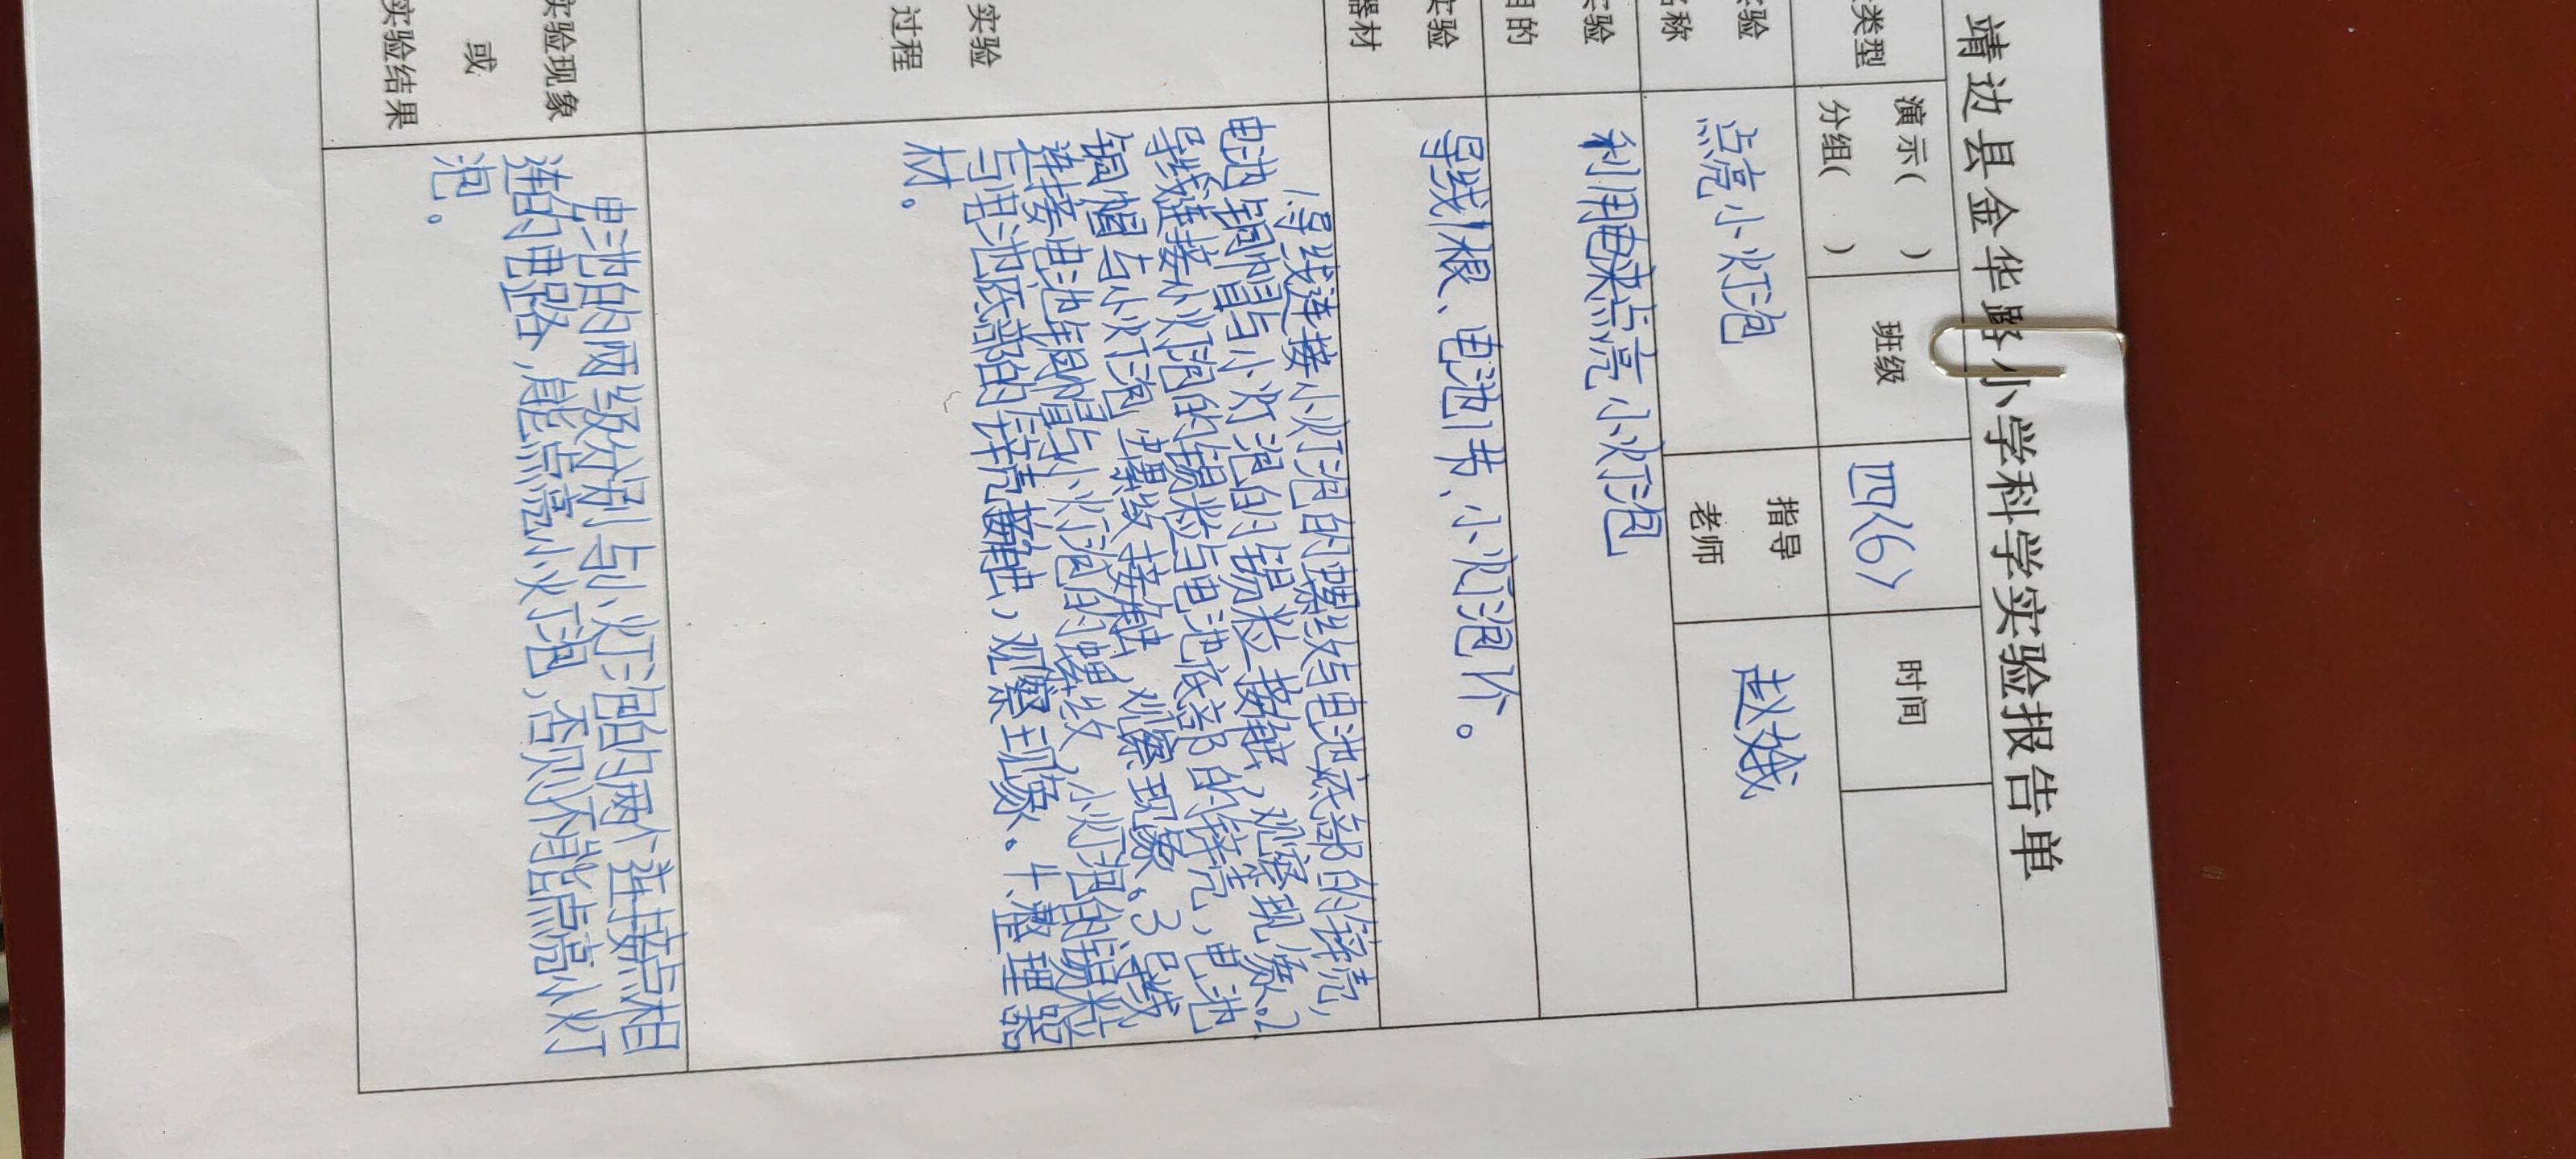 靖边县金华路小学科学实验报告单
类型 演示( ) 班级 四(6) 时间
分组( )
验 点亮小灯泡 指导 赵娥
名称 老师
实验 利用电来点亮小灯泡
目的
实验 导线1根、电池1节、小灯泡1个。
器材
1.导线连接小灯泡的螺纹与电池底部的锌壳,
电池铜帽与小灯泡的锡粒接触,观察现像。2
导线连接小灯泡的锡粒与电池底部的锌壳,电池
铜帽与小灯泡 螺纹接触 观察现象。3导线
连接电池铜帽与小灯泡的螺纹,小灯泡的锡粒
实验 与电池底部的锌壳接触,观察现象。4.整理器
过程 材。
电池的两级分别与小灯泡的两个连接点相
实验现象 连的电路,是能点亮小灯泡,否则不能点亮小灯
或 泡。
实验结果